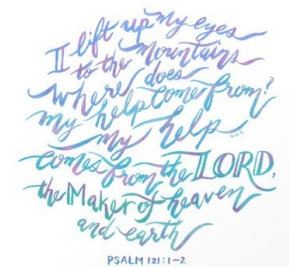 I lift up my eyes
to the mountains
where does
my help come from?
my help
comes from the LORD,
the Maker of heaven
and earth
PSALM 121:1~2